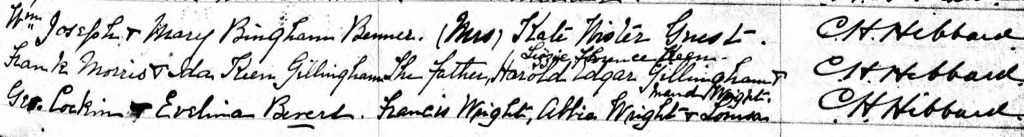 Wm Joseph & Mary Bingham Benner. (Mrs) Kate Wister Guest. C.H. Hibbard
Lizzie Florence
Frank Morris & Ida Riem Gillingham The father, Harold Edgar Gillingham & C.H. Hibbard
Maud Wright.
Geo. Lockin & Evelina Bevert. Francis Wright, Abbie Wright & Louisa C.H. Hibbard